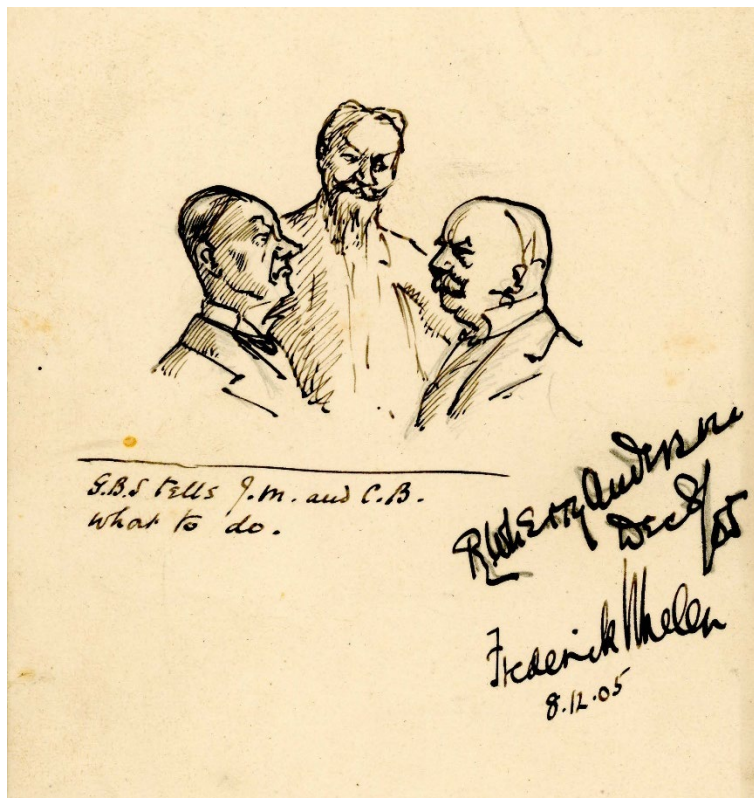 G.B.S tells J.M. and C.B.
what to do.
R Wherry Anderson
Dec 8/05
Frederick Whelen
8.12.05